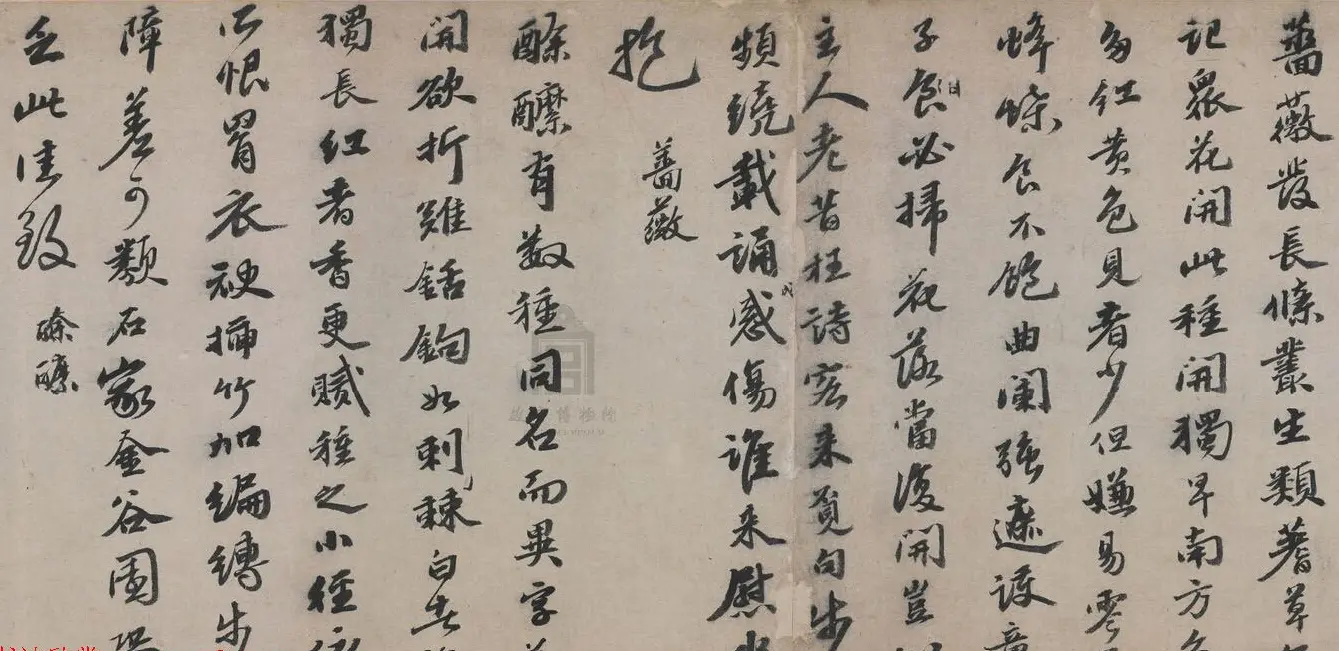 薔薇發長條叢生類蓍草
記眾花開此種開獨早南方
多紅黄色見者少但嫌易零
蜂蝶食不飽曲闌強遮護
子食必掃花落當復開豈
主人老昔枉詩客来覓句步
頻繞載誦感傷誰来慰
抱
薔薇
酴醾有數種同名而異字
開欲折難銛鉤如刺棘白者
獨長紅者香更贓種之小徑
所恨罥衣袂插竹加編縛步
障差可類石家金谷園
乏此佳致
酴醾